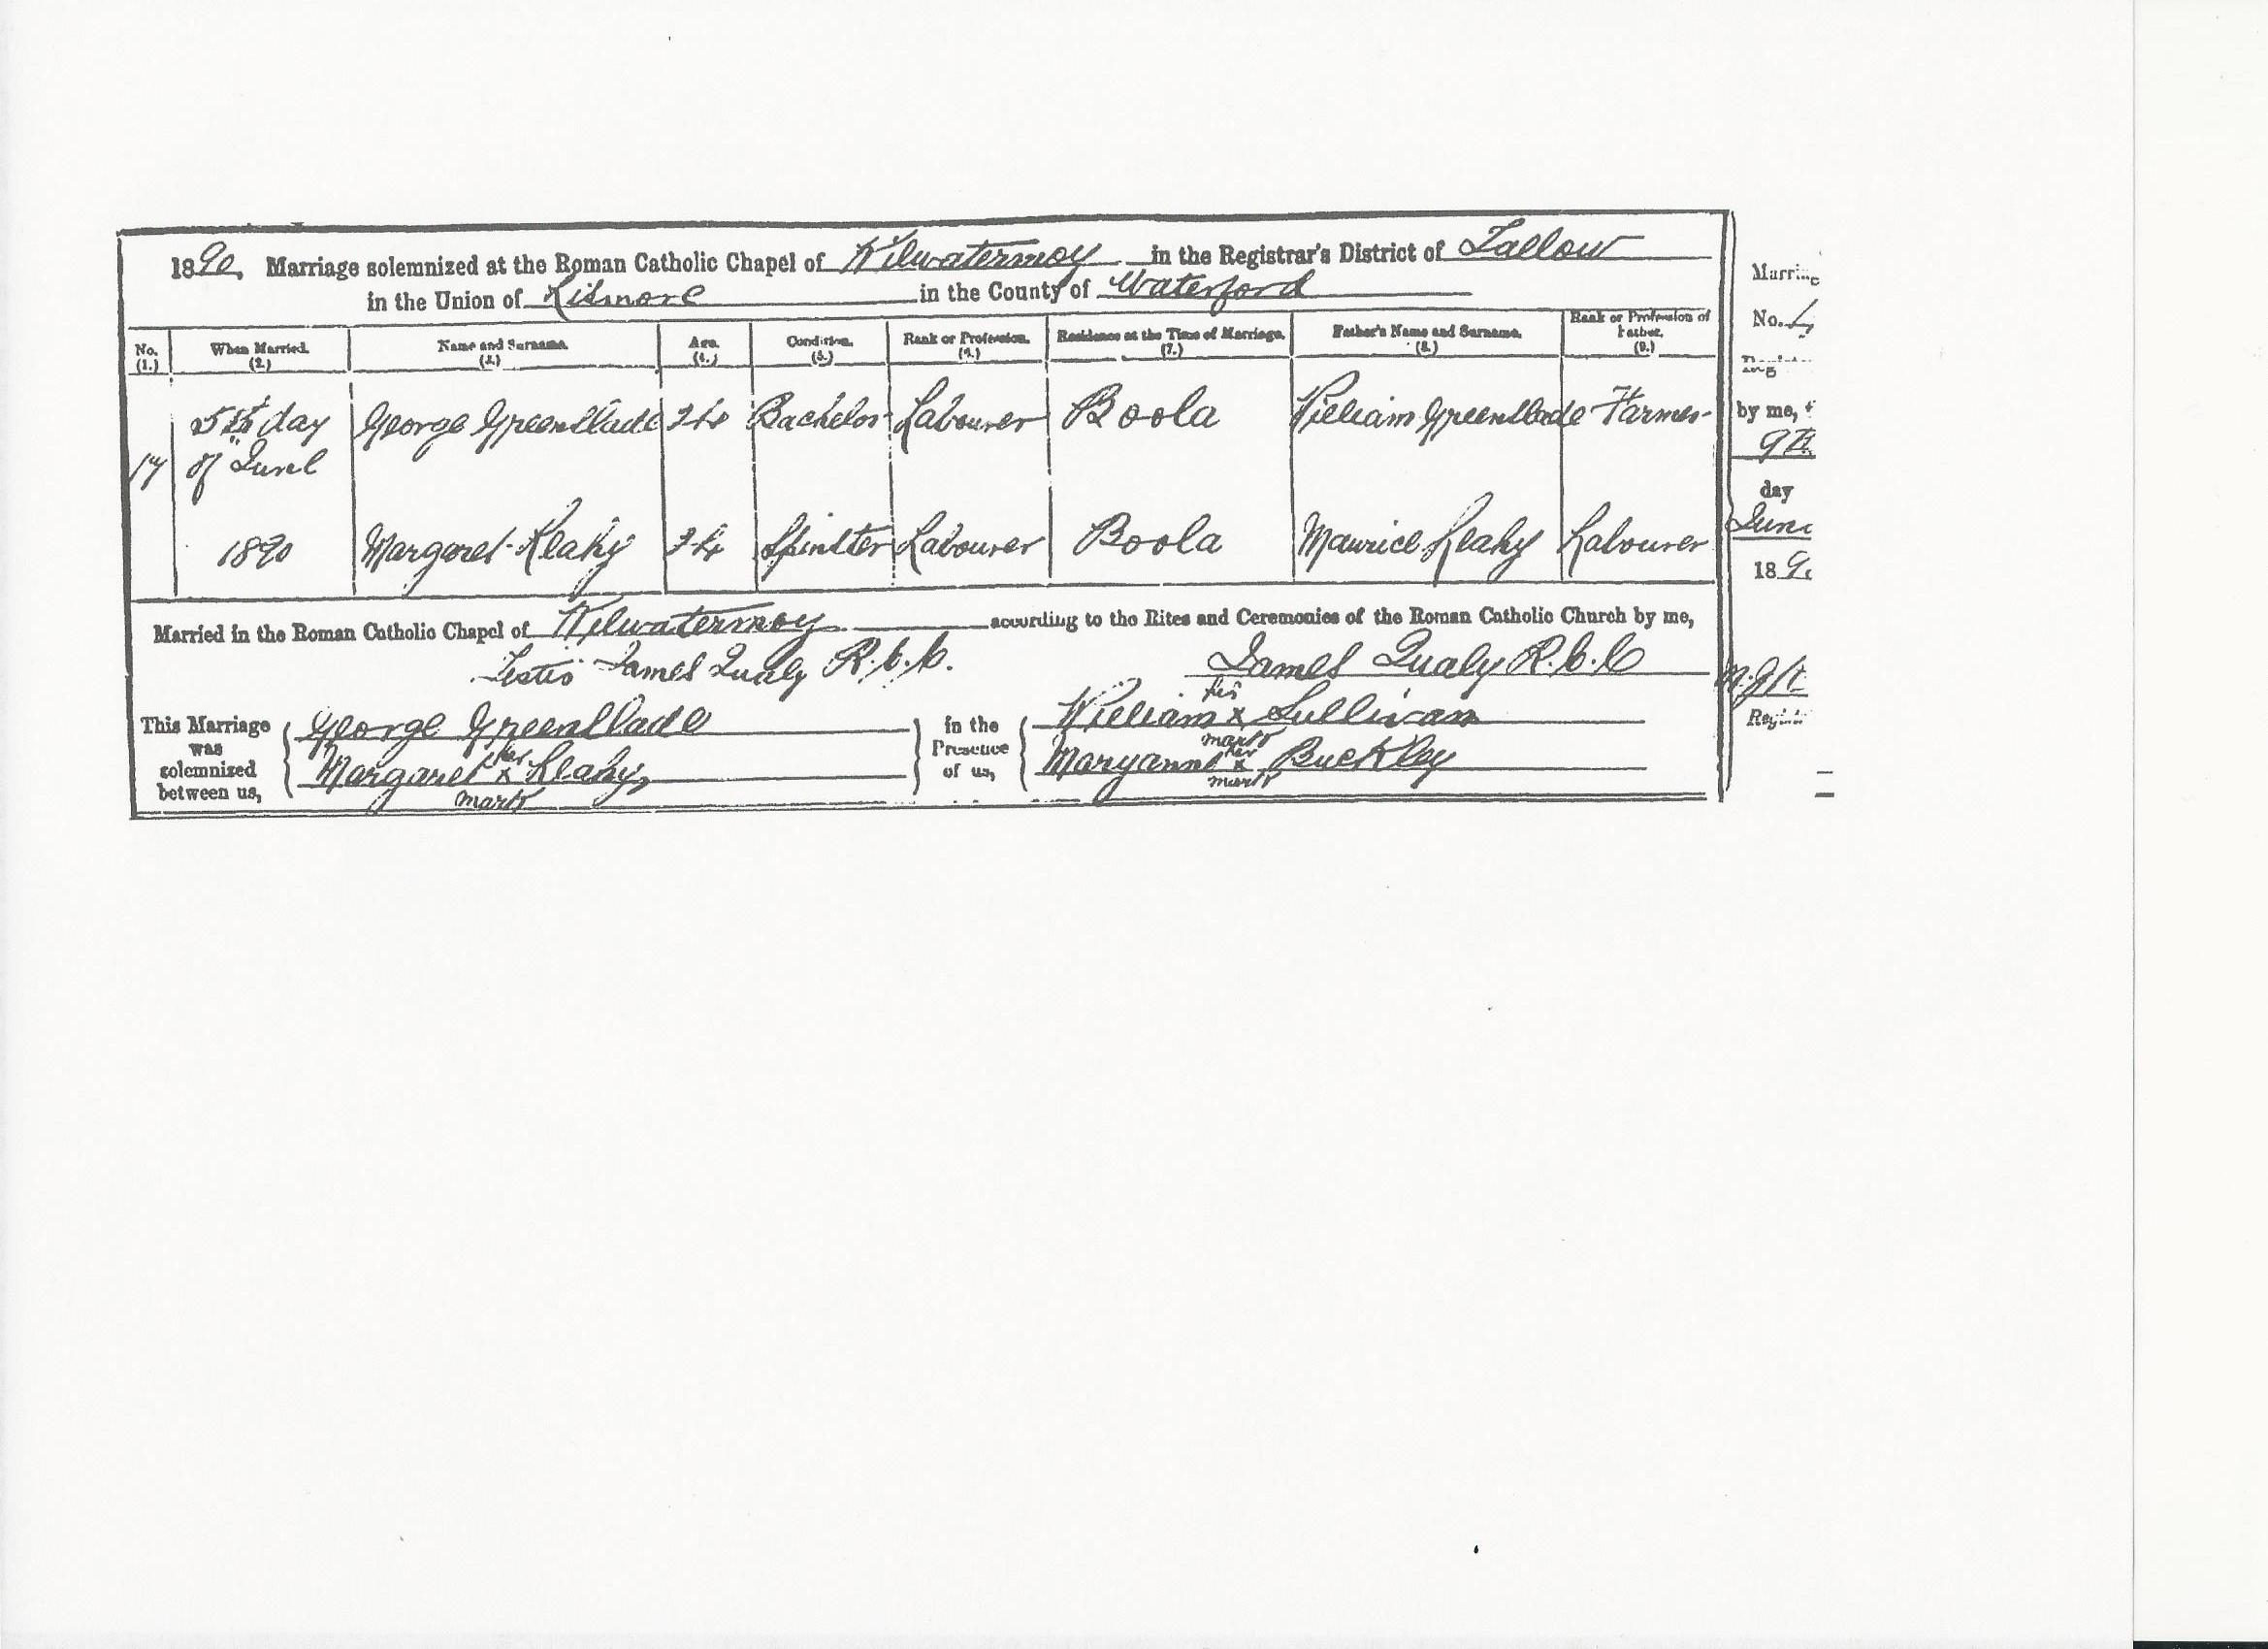 1890. Marriage solemnized at the Roman Catholic Chapel of Kilwatermoy in the Registrar's District of Tallow
in the Union of Lismore in the County of Waterford
No. (1.) When Married. (2.) Name and Surname. (3.) Age. (4.) Condition. (5.) Rank or Profession. (6.) Residence at the Time of Marriage. (7.) Father's Name and Surname. (8.) Rank or Profession of Father. (9.)
5th day George Greenslade 24 Bachelor Labourer Boola William Greenslade Farmer
17 of June
1890 Margaret Leahy 24 Spinster Labourer Boola Maurice Leahy Labourer
Married in the Roman Catholic Chapel of Kilwatermoy according to the Rites and Ceremonies of the Roman Catholic Church by me,
Testis James Qualy R.C.C. James Qualy R.C.C
This Marriage was solemnized between us, George Greenslade
Margaret her x mark Leahy,
in the Presence of us, William his x mark Sullivan
Maryanne her x mark Buckley
No.
by me,
9th
day
June
189